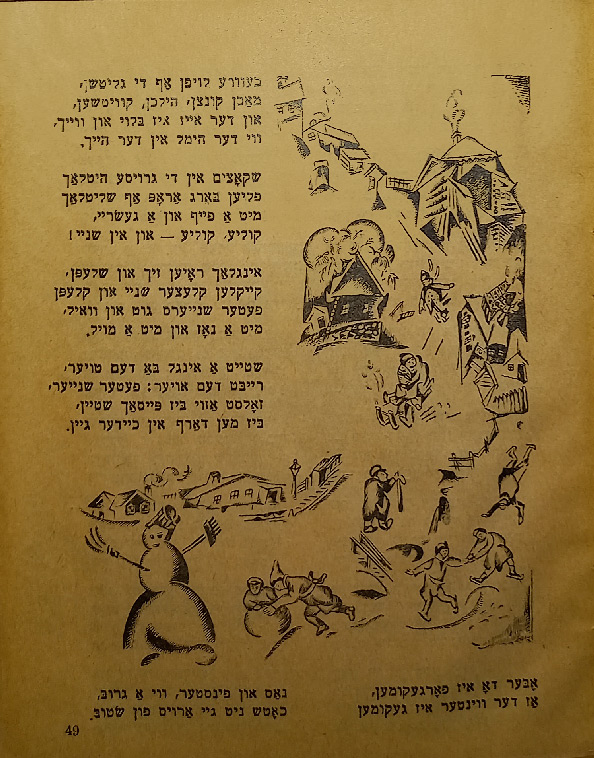 כעוורע לויפן אַף די גליטשן,
מאַכן קונצן, הילכן, קוויטשען,
און דער אייז איז בלוי און ווייך,
ווי דער הימל אין דער הייך.
שקאָצים אין די גרויסע היטלאַך
פליען באַרג אַראָפּ אַף שליטלאַך
מיט אַ פייף און אַ געשריי,
קוליע, קוליע — און אין שניי!
אינגלאַך ראָיען זיך און שלעפּן,
קייקלען קלעצער שניי און קלעפּן
פעטער שנייערס גוט און וואויל,
מיט אַ נאָז און מיט אַ מויל.
שטייט אַ אינגל באַ דעם טויער,
רייבט דעם אויער: פעטער שנייער,
זאָלסט אזוי ביז פּייסאַך שטיין,
ביז מען דאַרף אין כיידער גיין.
אָבער דאָ איז פאָרגעקומען,
אַז דער ווינטער איז געקומען
נאַס און פינסטער, ווי אַ גרוב,
כאָטש ניט גיי אַרויס פון שטוב.
49